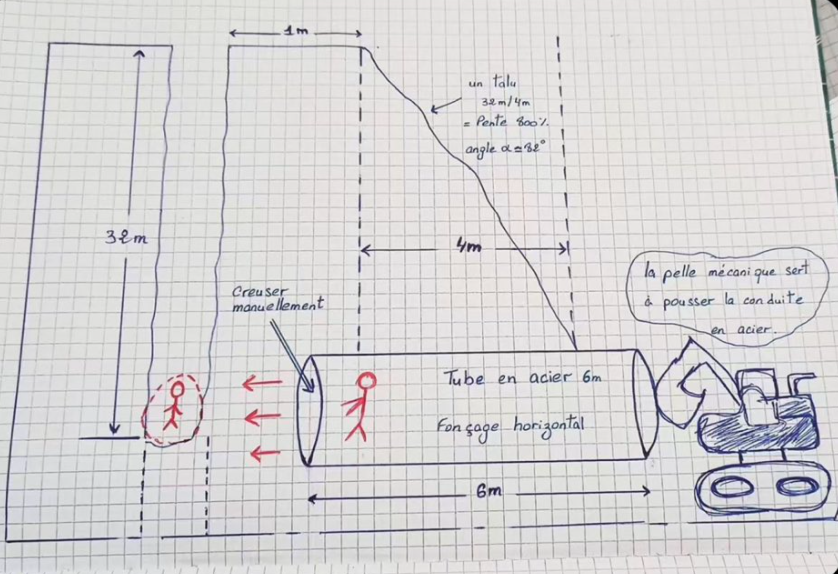 1m
un talu
32m/4m
= Pente 800%
angle α ≃ 82°
32m
4m
la pelle mécanique sert
à pousser la conduite
en acier.
Creuser
manuellement
Tube en acier 6m
Fonçage horizontal
6m